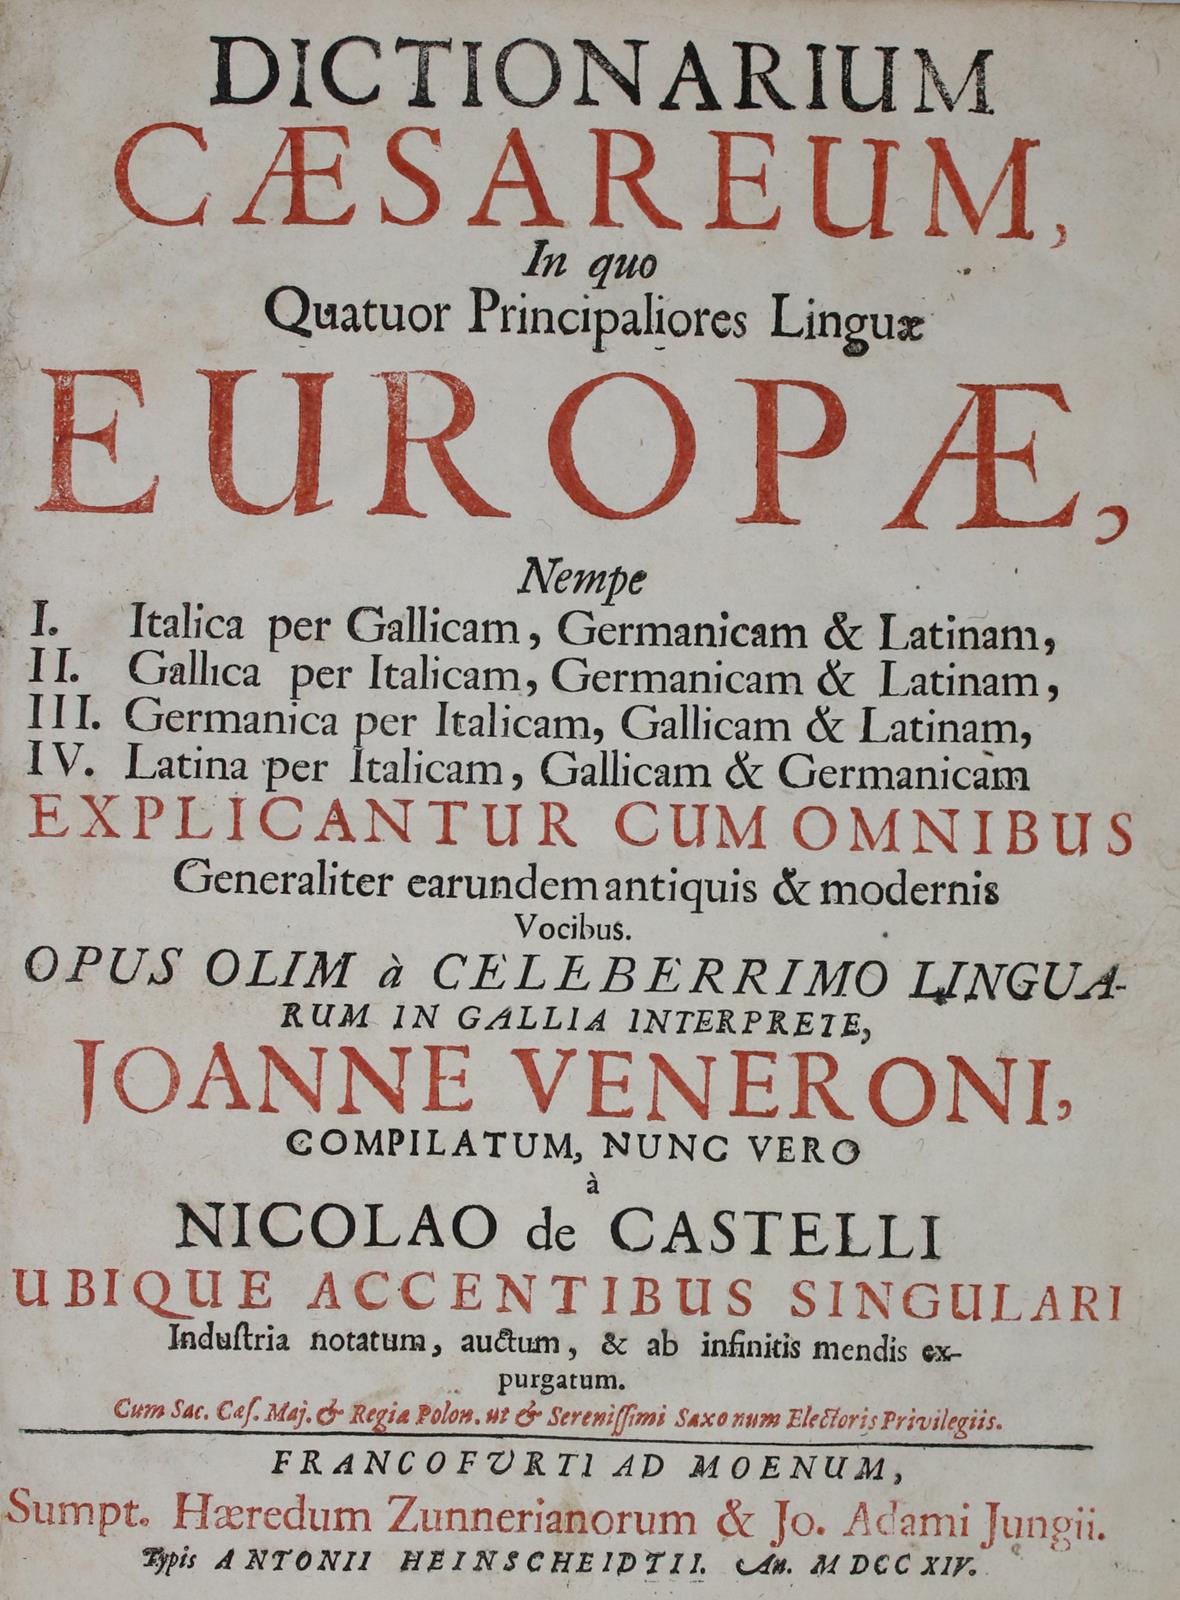 DICTIONARIUM
CÆSAREUM,
In quo
Quatuor Principaliores Linguæ
EUROPÆ,
Nempe
I. Italica per Gallicam, Germanicam & Latinam,
II. Gallica per Italicam, Germanicam & Latinam,
III. Germanica per Italicam, Gallicam & Latinam,
IV. Latina per Italicam, Gallicam & Germanicam
EXPLICANTUR CUM OMNIBUS
Generaliter earundem antiquis & modernis
Vocibus.
OPUS OLIM à CELEBERRIMO LINGUA-
RUM IN GALLIA INTERPRETE,
JOANNE VENERONI,
COMPILATUM, NUNC VERO
à
NICOLAO de CASTELLI
UBIQUE ACCENTIBUS SINGULARI
Induſtria notatum, auctum, & ab infinitis mendis ex-
purgatum.
Cum Sac. Cæſ. Maj. & Regia Polon. ut & Sereniſſimi Saxonum Electoris Privilegiis.
FRANCOFURTI AD MOENUM,
Sumpt. Hæredum Zunnerianorum & Jo. Adami Jungii.
Typis ANTONII HEINSCHEIDTII. An. MDCCXIV.